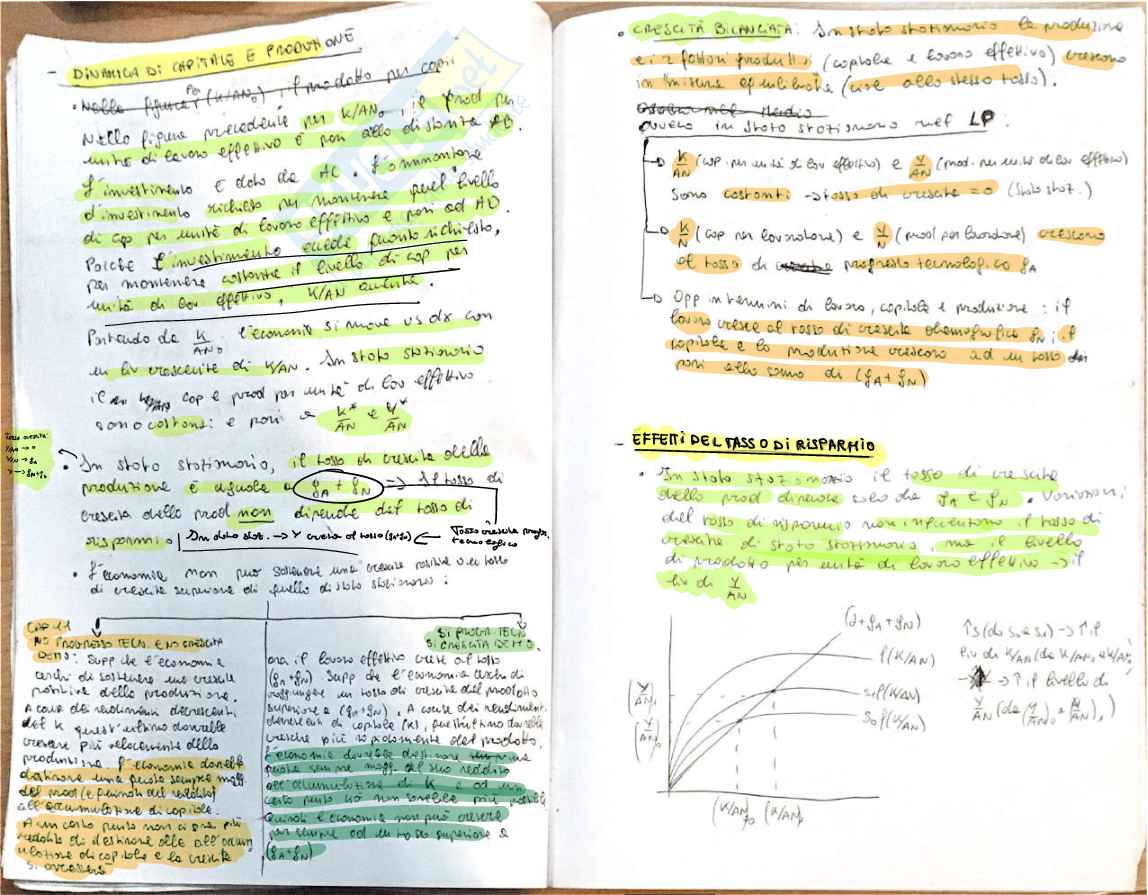 - DINAMICA DI CAPITALE E PRODUZIONE
• Nella figura per (K/AN₀), il prodotto per capii
Nella figura precedente per K/AN₀, il prod per
unità di lavoro effettivo è pari alla distanza AB.
L'investimento è dato da AC. L'ammontare
d'investimento richiesto per mantenere quel livello
di cap per unità di lavoro effettivo è pari ad AD.
Poiché l'investimento eccede quanto richiesto,
per mantenere costante il livello di cap per
unità di lav effettivo, K/AN aumenta.
Partendo da K/AN₀ l'economia si muove vs dx con
un liv crescente di K/AN. In stato stazionario
il K/AN cap e prod per unità di lav effettivo
sono costanti e pari a K*/AN e Y*/AN
Tasso crescita:
K/AN → 0
Y/N → gA
Y → gA+gN
• In stato stazionario, il tasso di crescita della
produzione è uguale a gA + gN → Il tasso di
crescita della prod non dipende dal tasso di
risparmio
In stato staz. → Y cresce al tasso (gA+gN) ← Tasso crescita progr. tecnologico
• L'economia non può sostenere una crescita positiva a un tasso
di crescita superiore di quello di stato stazionario:
CAP 11
NO PROGRESSO TECN. E NO CRESCITA
DEMO: Supp che l'economia
cerchi di sostenere una crescita
positiva della produzione.
A causa dei rendimenti decrescenti
del K quest'ultimo dovrebbe
crescere più velocemente della
produzione. L'economia dovrebbe
destinare una quota sempre magg
del prod (e quindi del reddito)
all'accumulazione di capitale.
A un certo punto non ci sarà più
reddito di destinare alla all'accum
ulazione di capitale e la crescita
si arresterà
SI PROGR TECN
SI CRESCITA DEMO.
ora il lavoro effettivo cresce al tasso
(gA+gN) Supp che l'economia cerchi di
raggiungere un tasso di crescita del prodotto
superiore a (gA+gN). A causa dei rendimenti
decrescenti di capitale (K), quest'ultimo dovrebbe
crescere più rapidamente del prodotto.
L'economia dovrebbe destinare una
quota sempre magg. del suo reddito
all'accumulazione di K e ad un
certo punto ciò non sarebbe più possibile
quindi l'economia non può crescere
per sempre ad un tasso superiore a
(gA+gN)
• CRESCITÀ BILANCIATA: In stato stazionario la produzione
e i 2 fattori produttivi (capitale e lavoro effettivo) crescono
in misura equilibrata (cioè allo stesso tasso).
ovvero in stato stazionario nel LP:
→ K/AN (cap. per unità di lav effettivo) e Y/AN (prod. per unità di lav effettivo)
sono costanti → tasso di crescita = 0 (stato staz.)
→ K/N (cap per lavoratore) e Y/N (prod per lavoratore) crescono
al tasso di progresso tecnologico gA
→ Opp in termini di lavoro, capitale e produzione: il
lavoro cresce al tasso di crescita demografica gN; il
capitale e la produzione crescono ad un tasso
pari alla somma di (gA+gN)
- EFFETTI DEL TASSO DI RISPARMIO
• In stato stazionario il tasso di crescita
della prod dipende solo da gA e gN. Variazioni
del tasso di risparmio non influenzano il tasso di
crescita di stato stazionario, ma il livello
di prodotto per unità di lavoro effettivo → il
liv di Y/AN
(δ+gA+gN)
f(K/AN)
s₁f(K/AN)
s₀f(K/AN)
(Y/AN)₁
(Y/AN)₀
(K/AN)₀ (K/AN)₁
↑S (da s₀ a s₁) → ↑ il
liv di K/AN (da K/AN₀ a K/AN₁)
→ ↑ il livello di
Y/AN (da (Y/AN)₀ a (Y/AN)₁)